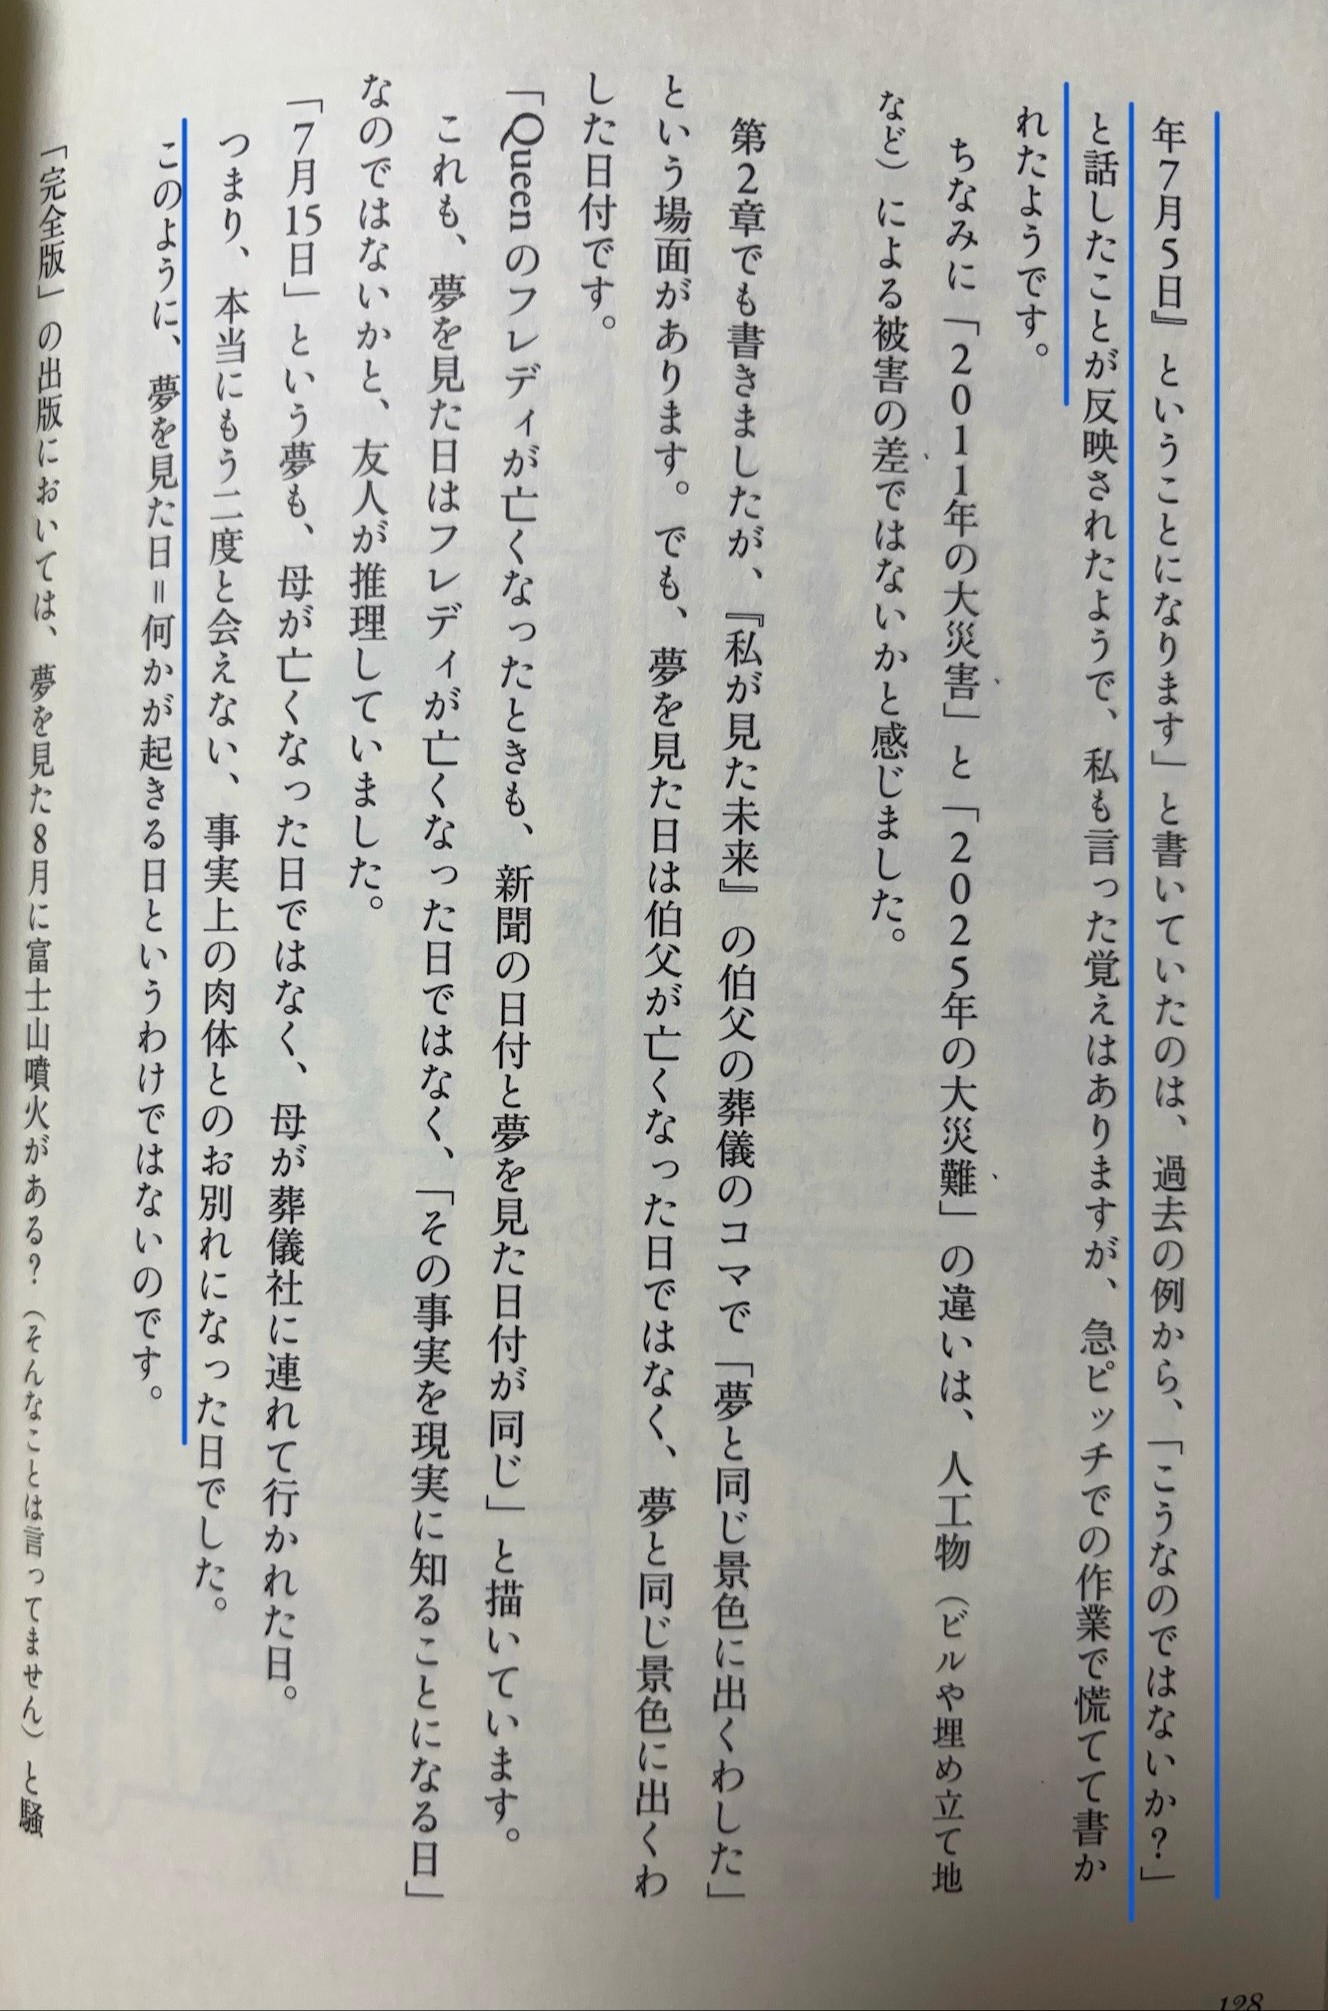 年7月5日』ということになります」と書いていたのは、過去の例から、「こうなのではないか?」
と話したことが反映されたようで、私も言った覚えはありますが、急ピッチでの作業で慌てて書か
れたようです。
ちなみに「2011年の大災害」と「2025年の大災難」の違いは、人工物(ビルや埋め立て地
など)による被害の差ではないかと感じました。
第2章でも書きましたが、『私が見た未来』の伯父の葬儀のコマで「夢と同じ景色に出くわした」
という場面があります。でも、夢を見た日は伯父が亡くなった日ではなく、夢と同じ景色に出くわ
した日付です。
「Queenのフレディが亡くなったときも、新聞の日付と夢を見た日付が同じ」と描いています。
これも、夢を見た日はフレディが亡くなった日ではなく、「その事実を現実に知ることになる日」
なのではないかと、友人が推理していました。
「7月15日」という夢も、母が亡くなった日ではなく、母が葬儀社に連れて行かれた日。
つまり、本当にもう二度と会えない、事実上の肉体とのお別れになった日でした。
このように、夢を見た日=何かが起きる日というわけではないのです。
「完全版」の出版においては、夢を見た8月に富士山噴火がある?(そんなことは言ってません)と騒
128